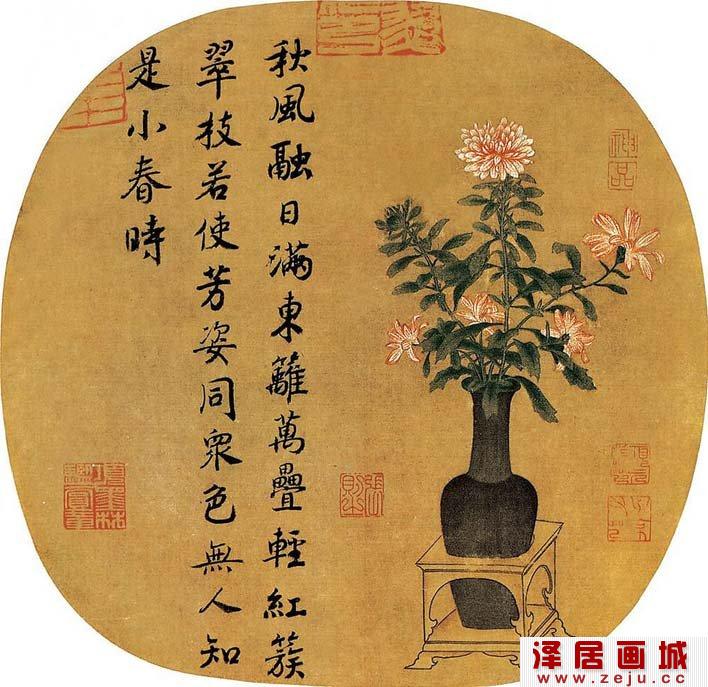 秋風融日滿東籬萬疊輕紅簇
翠枝若使芳姿同衆色無人知
是小春時
神品
泽居画城
www.zeju.cc